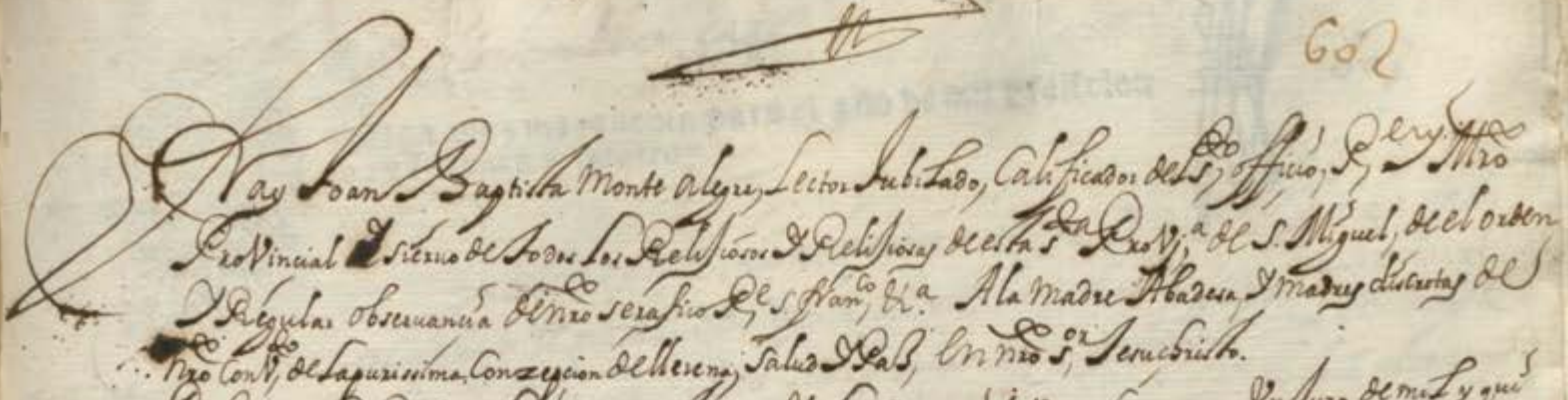 602
Fray Joan Baptista Monte alegre, Lector Jubilado, Calificador del S.to officio, P.e y Mro
Provincial Y sieruo de todos los Relihiosos Y Relihiosas de esta S.ta Prov.a de S. Miguel, de el orden
Y Regular obseruancia de nro serafico P.e S. fran.co, &.a A la Madre Abadesa, Y madres discretas de
nro Con.to de la purissima Conzepcion de llerena, Salud Y Pas, En nro S.or Jesuchristo.
de mil y